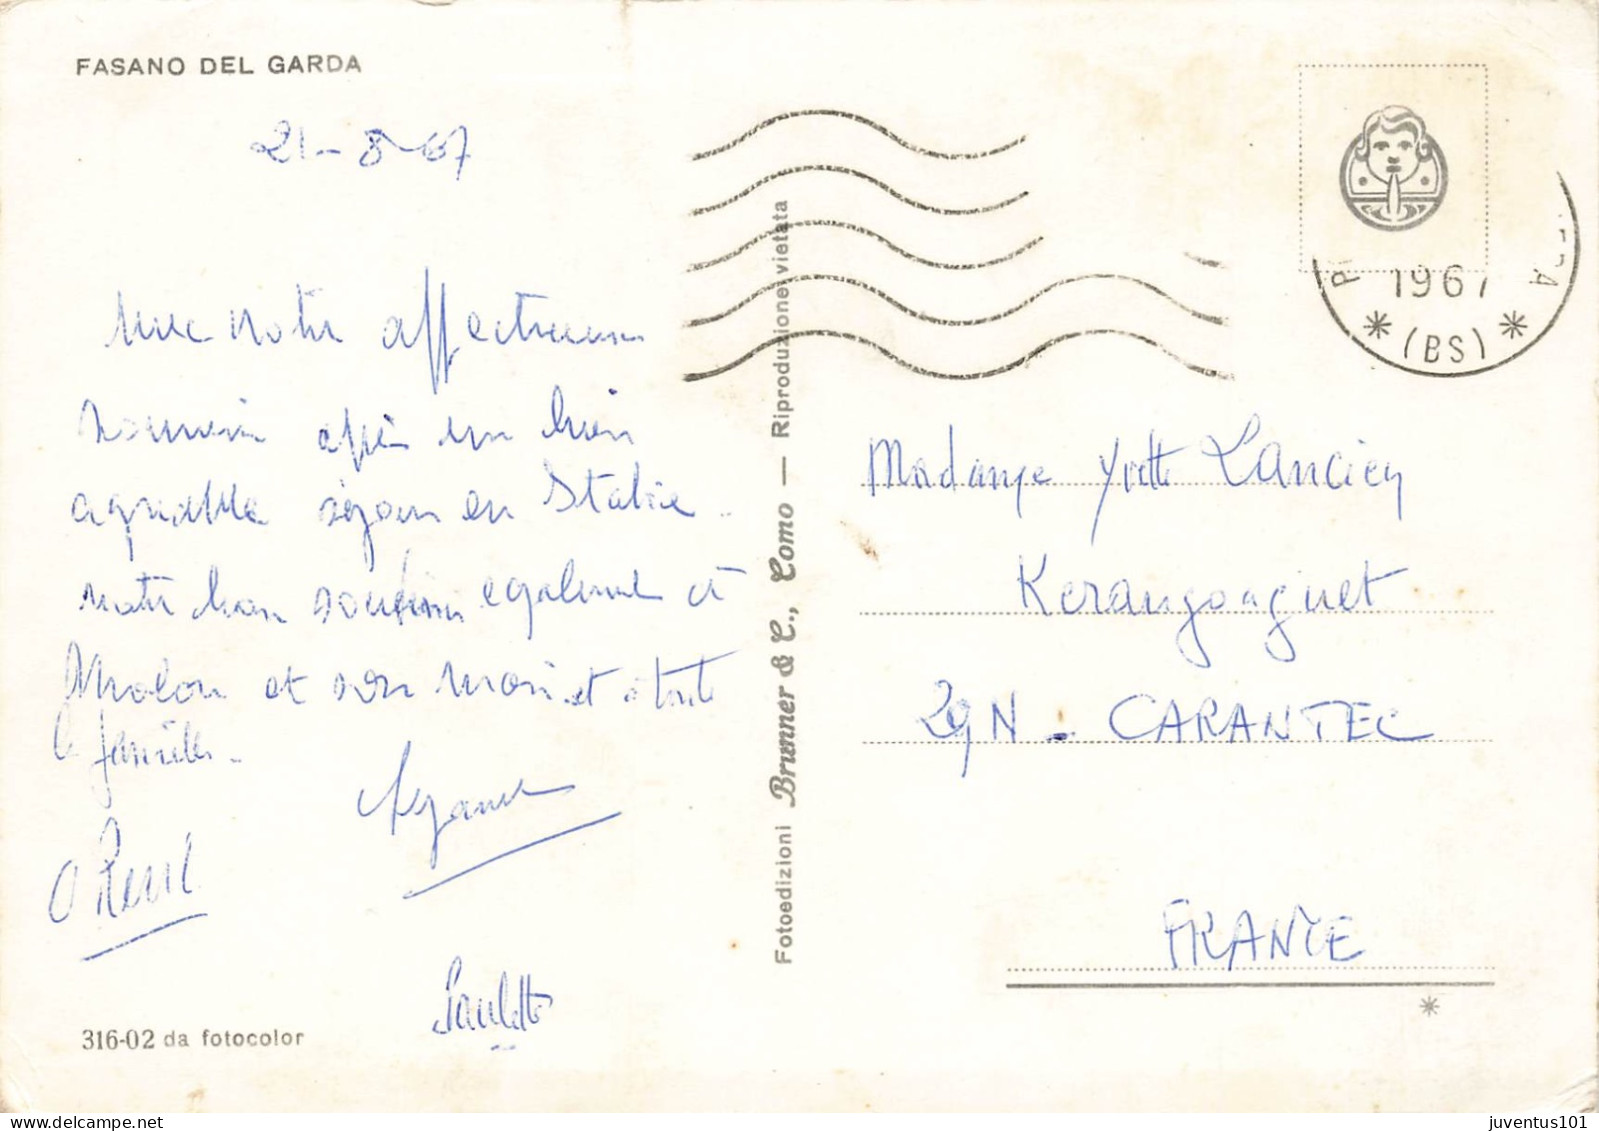 FASANO DEL GARDA
21-8-67
Avec notre affectueux
souvenir après un bien
agréable séjour en Italie.
notre bon souvenir également à
et son mari et à toute
la famille.
Paulette
316-02 da fotocolor
Fotoedizioni Brunner & C., Como — Riproduzione vietata
1967
(BS)
Madame Yvette Lancien
Kerangoaguet
29N - CARANTEC
FRANCE
juventus101